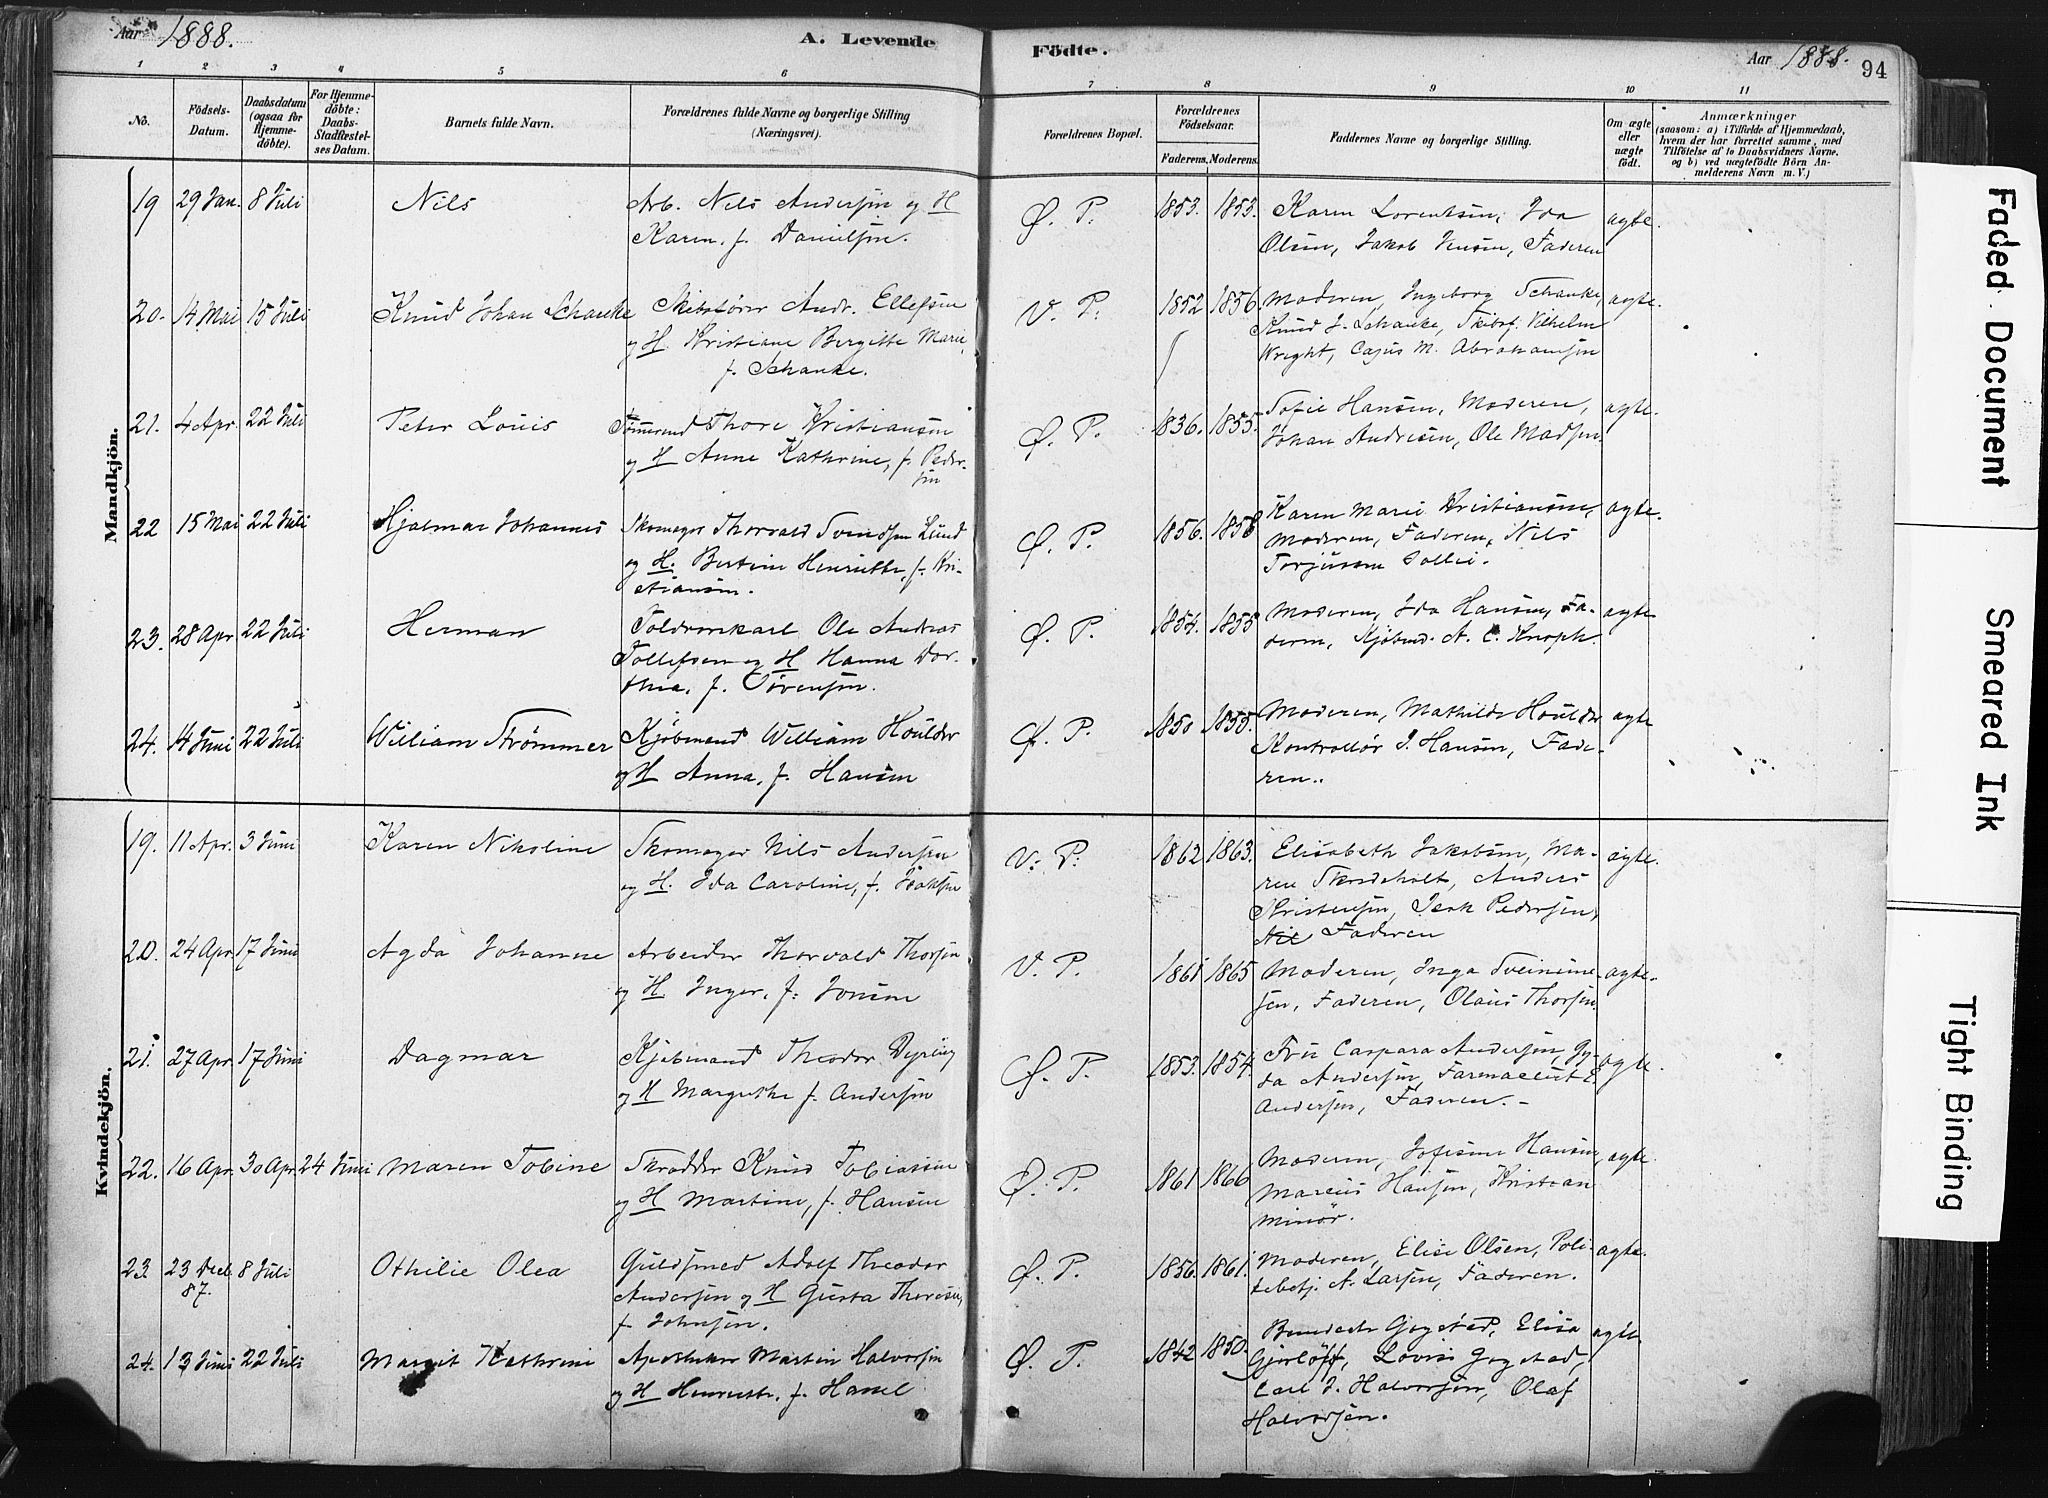 Aar 1888.
A. Levende
Födte.
Aar 1888.
94
1 2 3 4 5 6 7 8 9 10 11
No.
Födsels-
Datum.
Daabsdatum
(ogsaa for
Hjemme-
döbte).
For Hjemme-
döbte:
Daabs-
Stadfæstel-
ses Datum.
Barnets fulde Navn.
Forældrenes fulde Navne og borgerlige Stilling
(Næringsvei).
Forældrenes Bopæl.
Forældrenes
Födselsaar.
Faderens. Moderens.
Faddernes Navne og borgerlige Stilling.
Om ægte
eller
uægte
födt.
Anmærkninger
(saasom: a) i Tilfælde af Hjemmedaab,
hvem der har forrettet samme, med
Tilföielse af to Daabsvidners Navne,
og b) ved uægtefödte Börn An-
melderens Navn m. V.)
Mandkjön.
19 29 Jan. 8 Juli Nils
Arb. Nils Andersen og H
Karen, f. Danielsen.
Ø. P. 1853. 1853.
Karen Lorentsen, Ida
Olsen, Jakob Jensen, Faderen
ægte.
20. 14 Mai 15 Juli Knud Johan Schanke
Skibsfører Andr. Ellefsen
og H. Kristiane Bergitte Marie,
f. Schanke.
V. P. 1852 1856.
Moderen, Ingeborg Schanke,
Knud J. Schanke, Skibsf. Vilhelm
Wright, Cajus M. Abrahamsen
ægte.
21. 4 Apr. 22 Juli Peter Louis
Tømmermd Thore Kristiansen
og H Anne Kathrine, f. Peder-
sen
Ø. P. 1836. 1855.
Sofie Hansen, Moderen,
Johan Andresen, Ole Madsen.
ægte.
22 15 Mai 22 Juli Hjalmar Johannes
Skomager Thorvald Svendsen Lund
og H. Bertine Henriette, f. Kri-
stiansen.
Ø. P. 1856. 1858
Karen Marie Kristiansen,
Moderen, Faderen, Nils
Torjusen Sollie.
ægte.
23. 28 Apr 22 Juli Herman
Toldromkarl Ole Andreas
Tollefsen og H Hanna Dor-
thea, f. Sørensen.
Ø. P. 1854. 1855
Moderen, Ida Hansen, Fa-
deren, Kjøbmd. A. C. Knoph.
ægte
24. 14 Juni 22 Juli William Strømmer
Kjøbmand William Houlder
og H Anna, f. Hansen
Ø. P. 1850 1855.
Moderen, Mathilde Houlder
Kontrollør J. Hansen, Fade-
ren..
ægte
Kvindekjön.
19. 11 Apr. 3 Juni Karen Nikoline
Skomager Nils Andersen
og H. Ida Caroline, f. Isaksen
V. P. 1862 1863.
Elisabeth Jakobsen, Ma-
ren Skordeholt, Anders
Kristensen, Isak Pedersen,
Nil Faderen
ægte.
20. 24 Apr. 17 Juni Agda Johanne
Arbeider Thorvald Thorsen
og H Inger, f. Jonsen
V. P. 1861 1865
Moderen, Inga Sveinine-
sen, Faderen, Olaus Thorsen.
ægte.
21. 27 Apr 17 Juni Dagmar
Kjøbmand Theodor Dyring
og H Margrethe f. Andersen
Ø. P. 1853. 1854.
Fru Caspara Andersen, Gy-
da Andersen, Farmaceut E.
Andersen, Faderen. -
ægte.
22. 16 Apr. 30 Apr. 24 Juni Maren Tobine
Skrædder Knud Tobiassen
og H Martine, f. Hansen
Ø. P. 1861 1866
Moderen, Josefine Hansen,
Marcus Hansen, Kristian
Minör.
ægte.
23. 23 Decb. 87. 8 Juli Othilie Olea
Guldsmed Adolf Theodor
Andersen og H Gusta Therese,
f. Johnsen.
Ø. P. 1856. 1861.
Moderen, Elise Olsen, Poli-
tibetj. A. Larsen, Faderen.
ægte.
24. 13 Juni 22 Juli Margit Kathrine
Apotheker Martin Halvorsen
og H Henriette, f. Hassel
Ø. P. 1842 1850.
Gogstad, Elisa
Gjerløff, Lovise Gogstad,
Carl J. Halvorsen, Olaf
Halvorsen.
ægte.
Faded Document
Smeared Ink
Tight Binding